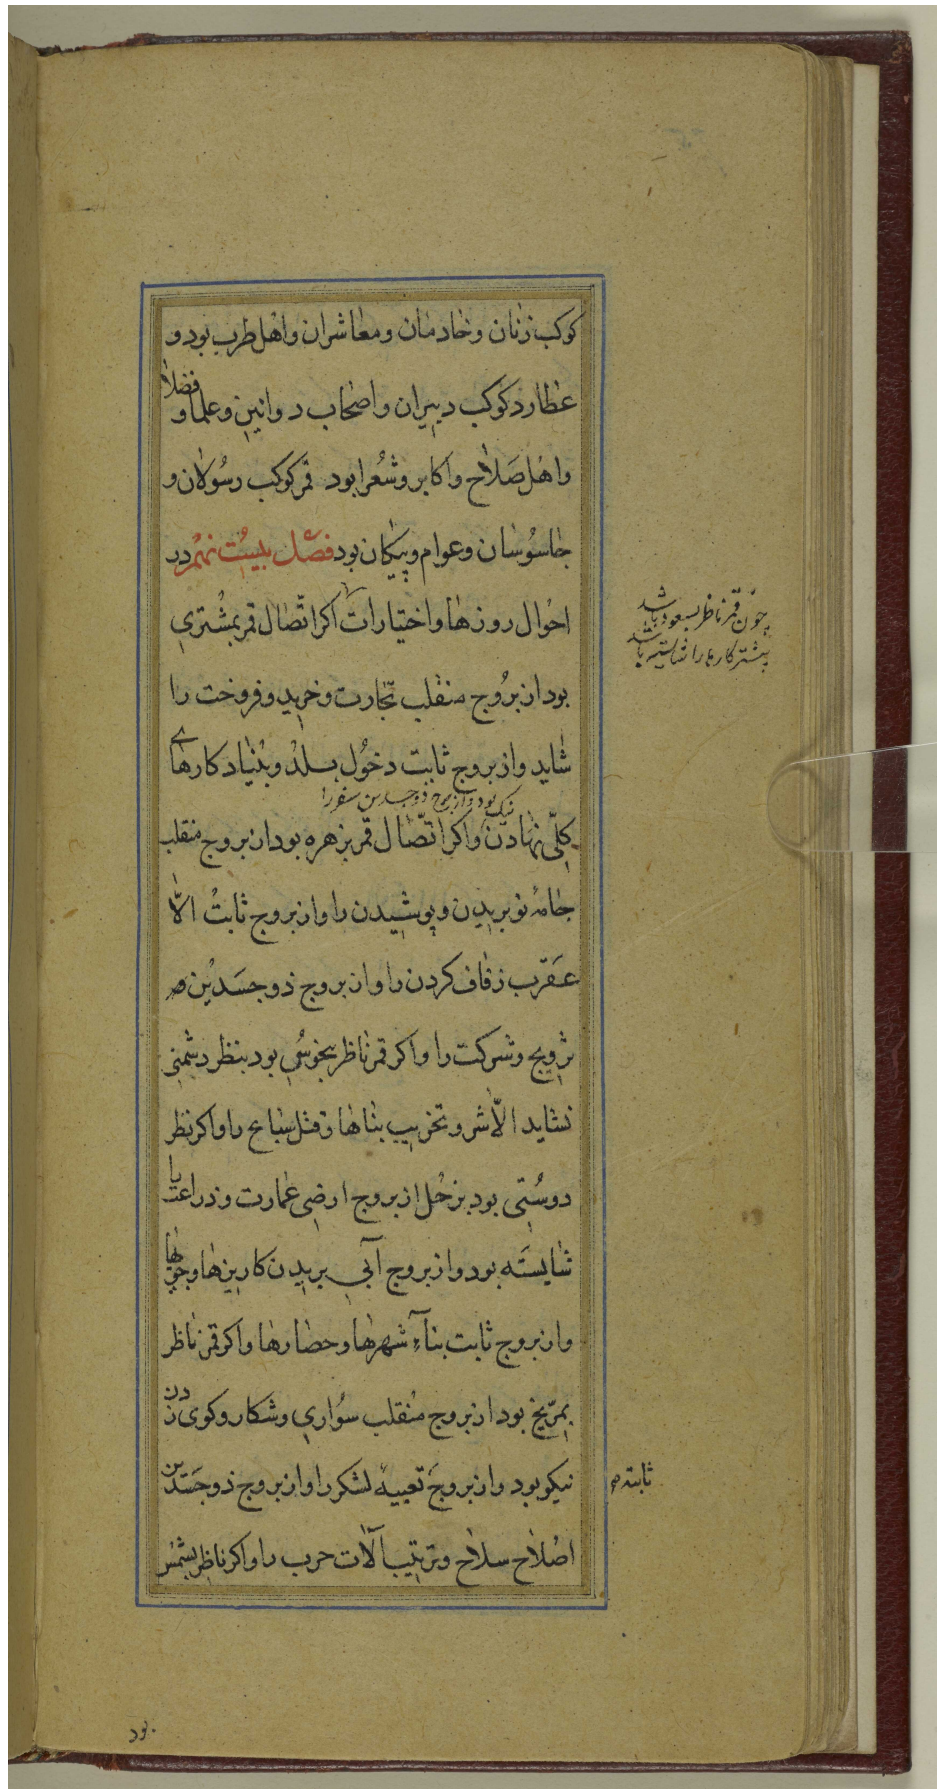 کوکب زنان و خادمان و معاشران و اهل طرب بود و
عطارد کوکب دبیران و اصحاب دواوین و علما و فضلا
و اهل صلاح و اکابر و شعرا بود قمر کوکب رسولان و
جاسوسان و عوام و پیکان بود فصل بیست نهم در
احوال روزها و اختیارات اکر اتّصال قمر بمشتری
چون قمر ناظر بسعود باشد
بیشتر کارها را شایسته باشد
بود از بروج منقلب تجارت و خرید و فروخت را
شاید و از بروج ثابت دخول بلد و بنیاد کارهای
نیک بود و از بروج ذوجسدین سفر را
کلّی نهادن و اکر اتّصال قمر بزهره بود از بروج منقلب
جامهٔ نو بریدن و پوشیدن را و از بروج ثابت الّا
عقرب زفاف کردن را و از بروج ذوجسدین
تزویج و شرکت را و اکر قمر ناظر بنحوس بود بنظر دشمنی
نشاید الّا شر و تخریب بناها و قتل سباع را و اکر نظر
دوستی بود بزحل از بروج ارضی عمارت و زراعت را
شایسته بود و از بروج آبی بریدن کاریزها و جویها
و از بروج ثابت بناء شهرها و حصارها و اکر قمر ناظر
بمرّیخ بود از بروج منقلب سواری و شکار و کوی زدن
نیکو بود و از بروج تعبیهٔ لشکر را و از بروج ذوجسدین
ثابته
اصلاح سلاح و ترتیب آلات حرب را و اکر ناظر بشمس
بود